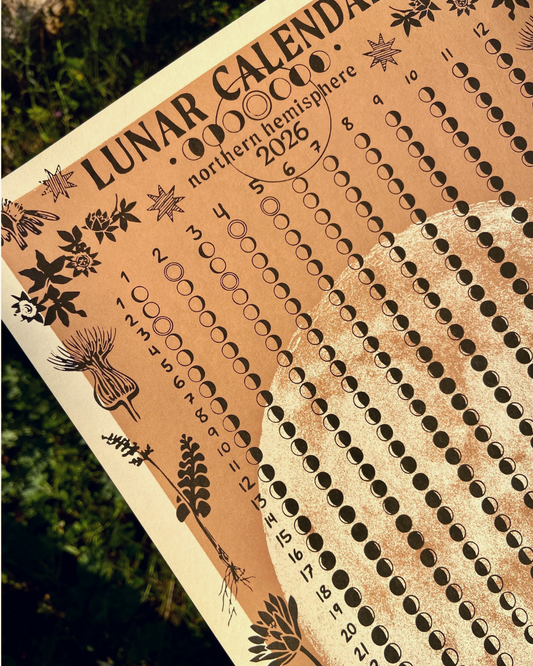 LUNAR CALENDA
northern hemisphere
2026
1 2 3 4 5 6 7 8 9 10 11 12
1
2
3
4
5
6
7
8
9
10
11
12
13
14
15
16
17
18
19
20
21